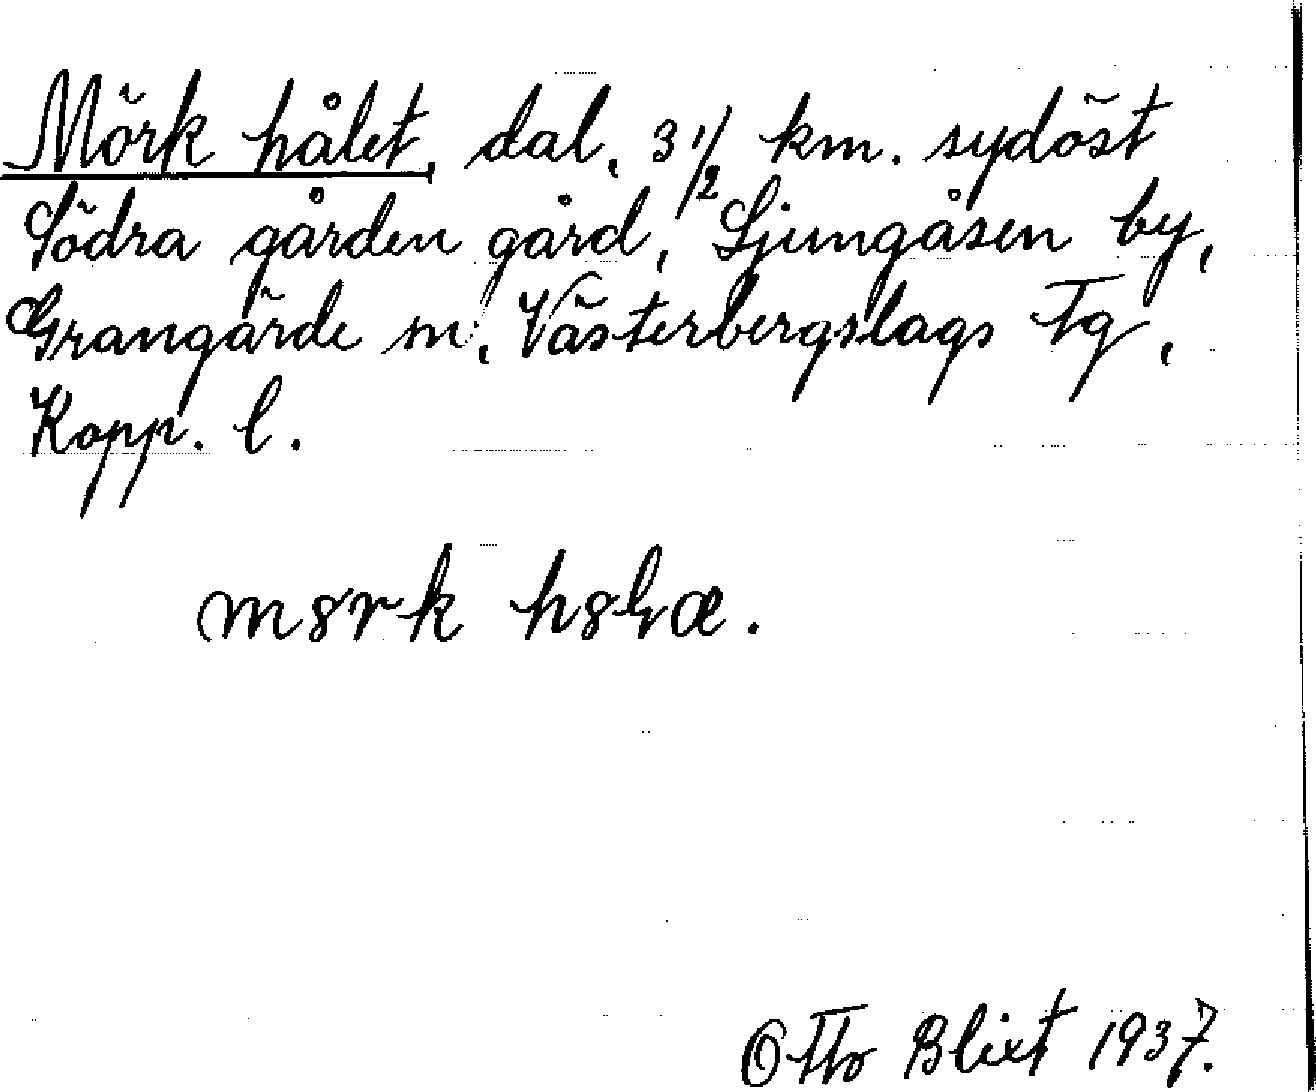 Mörk hålet, dal, 3 1/2 km. sydöst
Södra gården gård, Ljungåsen by,
Grangärde sn, Västerbergslags Tg,
Kopp. l.
Otto Blixt 1937.